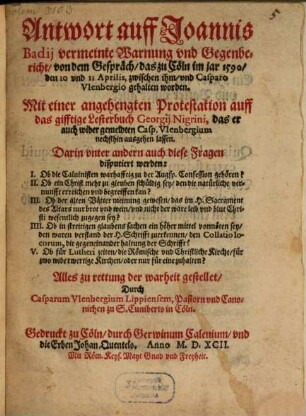 Antwort auff Joannis
Badij vermeinte Warnung vnd Gegenbe-
richt/ von dem Gespräch/ das zu Cöln im jar 1590/
den 10 vnd 11 Aprilis, zwischen ihm/ vnd Casparo
Vlenbergio gehalten worden.
Mit einer angehengten Protestation auff
das gifftige Lesterbuch Georgij Nigrini, das er
auch wider gemeldten Casp. Vlenbergium
nechsthin ausgehen lassen.
Darin vnter andern auch diese Fragen
disputiert werden:
I. Ob die Caluinisten warhafftig zu der Augsp. Confession gehören?
II. Ob ein Christ mehr zu gleuben schüldig sey/ den die natürliche ver-
nunfft erreichen vnd begreiffen kan?
III. Ob der alten Vätter meinung gewesen/ das im H. Sacrament
des Altars nur brot vnd wein/ vnd nicht der ware leib vnd blut Chri-
sti wesentlich zugegen sey?
IIII. Ob in streitigen glaubens sachen ein höher mittel vonnöten sey/
den waren verstand der H. Schrifft zuerkennen/ den Collatio lo-
corum, die gegeneinander haltung der Schriffte?
V. Ob für Lutheri zeiten/ die Römische vnd Christliche Kirche/ für
zwo widerwertige Kirchen/ oder nur für eine gehalten?
Alles zu rettung der warheit gestellet/
Durch
Casparum Vlenbergium Lippiensem, Pastorn vnd Cano-
nichen zu S. Cuniberts in Cöln.
Gedruckt zu Cöln/ durch Gerwinum Calenium/ vnd
die Erben Johan Quentels. Anno M. D. XCII.
Mit Röm. Keys. Mayt Gnad vnd Freyheit.